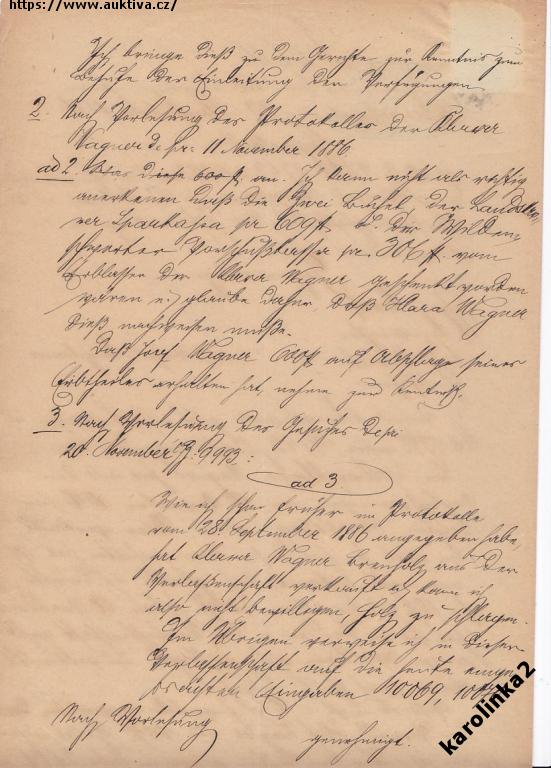 https://www.auktiva.cz/
Ich bringe dieß zu dem Gerichte zur Kenntnis zum
Behufe der Einleitung der Verfügungen
2. Nach Vorlesung des Protokolles der Klara
Wagner de pr: 11 November 1886
ad 2. diese 600 f an. Ich kann nicht als richtig
anerkennen daß die zwei Büchel der
Sparkassa pr 609 f u. der Wilden
schwerter Vorschußkassa pr. 306 f. vom
Erblasser der Klara Wagner geschenkt worden
wären u. glaube daher, daß Klara Wagner
dieß nachweisen muße.
Daß Josef Wagner 600 f auf Abschlage seines
Erbtheiles erhalten hat, nehme zur Kentniß.
3. Nach Vorlesung des Gesuches de pr
20. November Z: 9993:
ad 3.
Wie ich schon früher im Protokolle
vom 28. September 1886 angegeben habe,
hat Klara Wagner Brenholz aus der
Verlassenschaft verkauft u. kann ich
also nicht bewilligen, Holz zu schlagen.
Im Übrigen verweise ich in dieser
Verlassenschaft auf die heute einge
brachten Eingaben 10069,
Nach Vorlesung genehmigt.
karolinka2